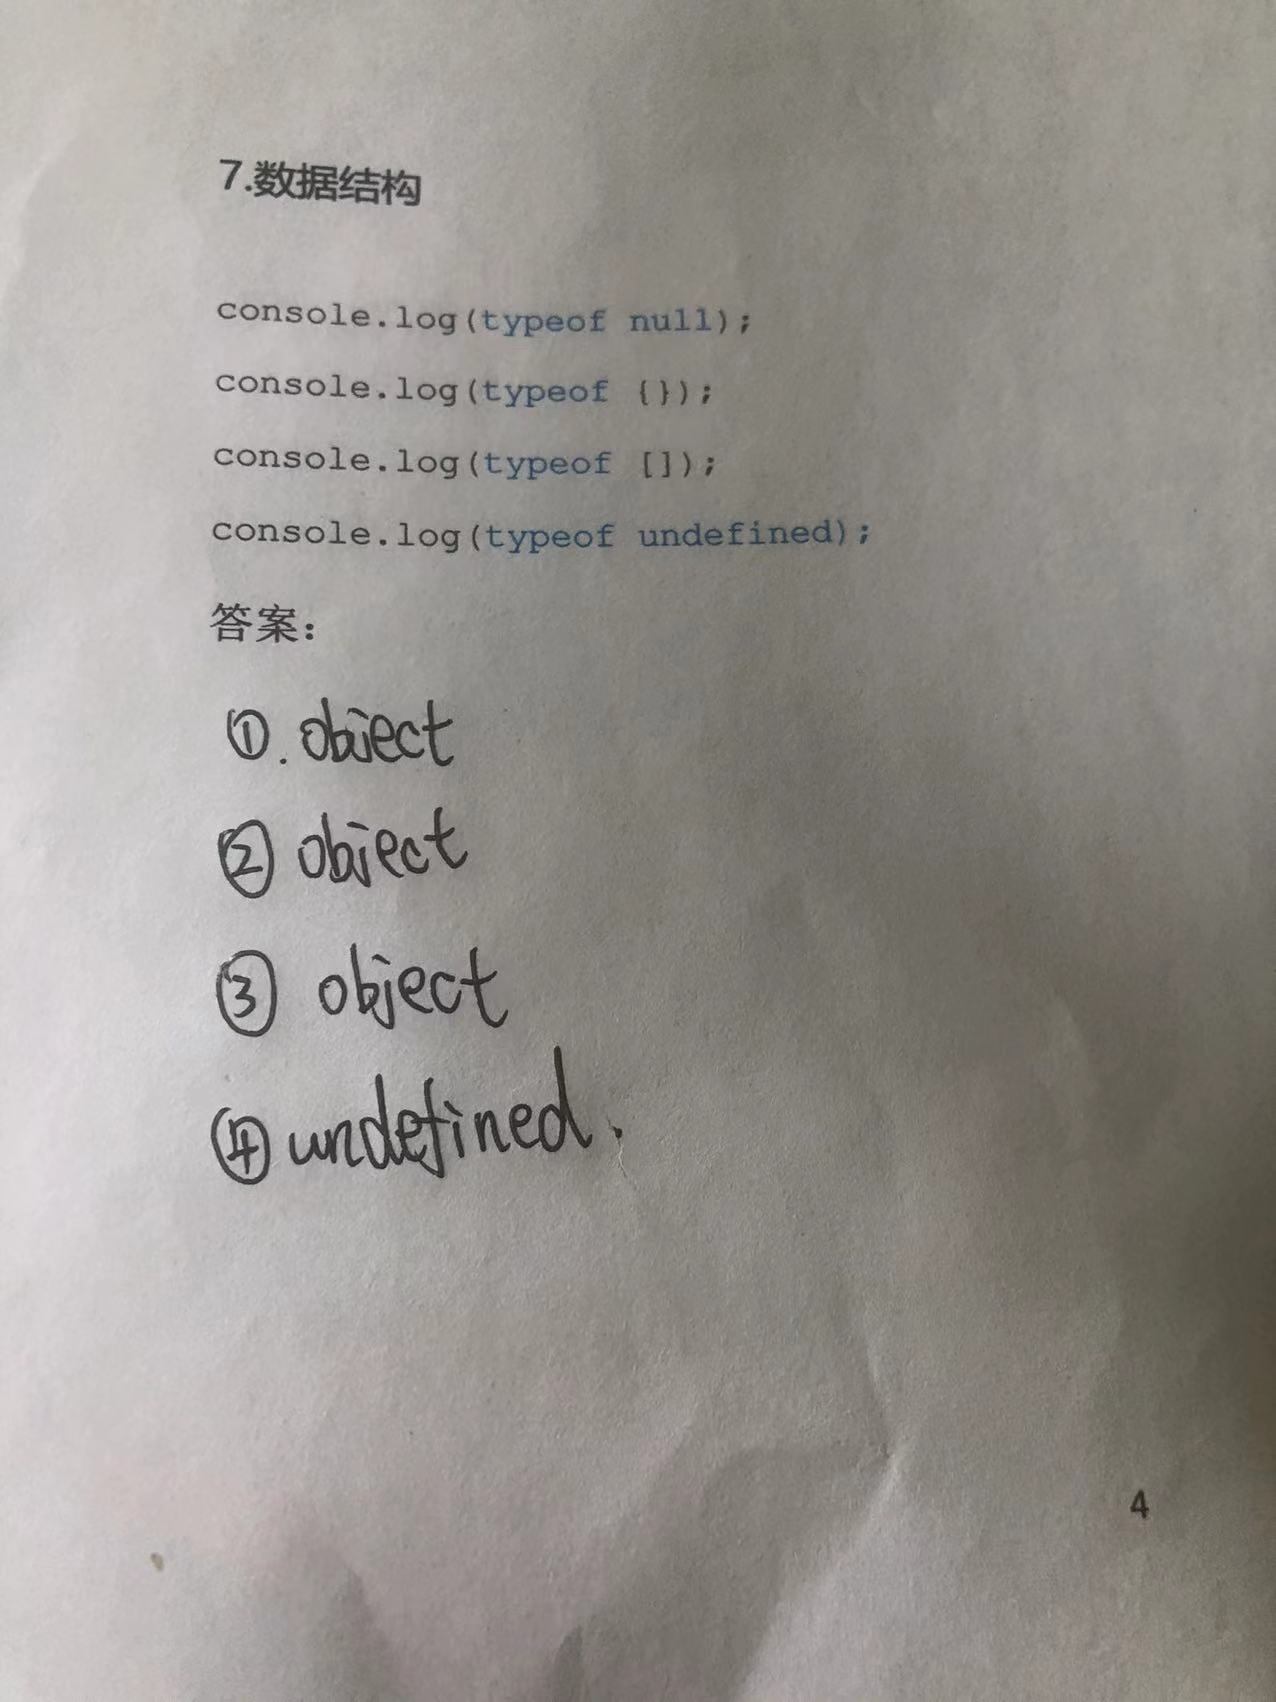 7.数据结构
console.log(typeof null);
console.log(typeof {});
console.log(typeof []);
console.log(typeof undefined);
答案：
①. object
② object
③ object
④ undefined.
4